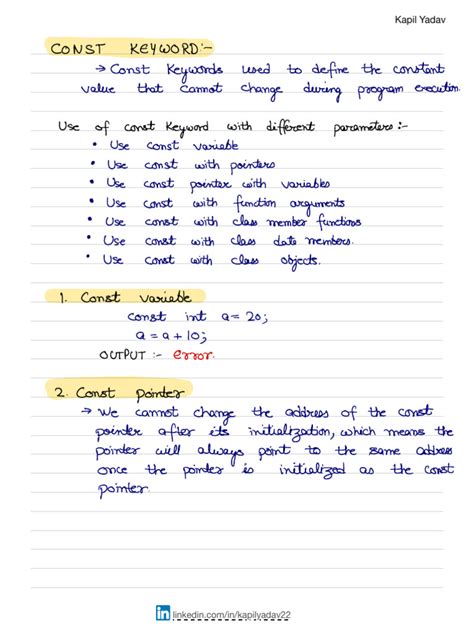 Kapil Yadav
CONST KEYWORD:-
→ Const Keywords used to define the constant
value that cannot change during program execution.
Use of const Keyword with different parameters:-
• Use const variable
• Use const with pointers
• Use const pointer with variables
• Use const with function arguments
• Use const with class member functions
• Use const with class date members.
• Use const with class objects.
1. Const variable
const int a= 20;
a = a + 10;
OUTPUT :- error.
2. Const pointer
→ We cannot change the address of the const
pointer after its initialization, which means the
pointer will always point to the same address
once the pointer is initialized as the const
pointer.
in linkedin.com/in/kapilyadav22